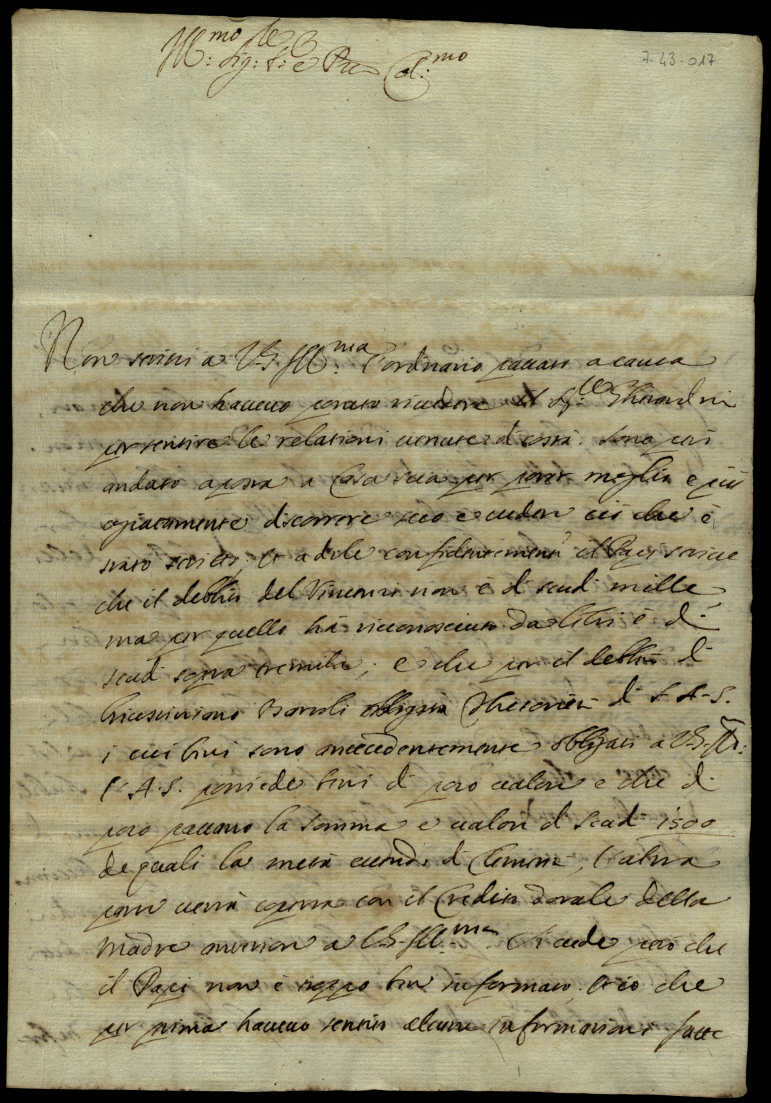 Ill:mo Sig:r S:e e P̃ne Col:mo
7-43-017
Non scrissi a V.S. Ill:ma l'ordinario passato a causa
che non havevo potuto vedere il Sig:re Gherardini
per sentire le relationi venute di costà. Sono poi
andato a posta a Casa sua per poter meglio e più
agiatamente discorrere seco e veder ciò che è
stato scritto; et a dirle confidentemente il Papi scrive
che il debito del Vincenzi non è di scudi mille,
ma per quello ha riconosciuto da libri è di
scudi sopra tremila; e che per il debito di
Bartoli di S. A. S.
i cui beni sono antecedentemente obligati a V.S. Ill:
l'A. S. possiede beni di poco valore e che di
poco passano la somma e valore di scudi 1500
de quali la metà essendo di , l'altra
parte verrà coperta con il Credito dotale della
Madre anteriore a V.S. Ill:ma Si vede però che
il Papi non è troppo ben informato, et io che
per prima havevo sentito alcune informationi fatte